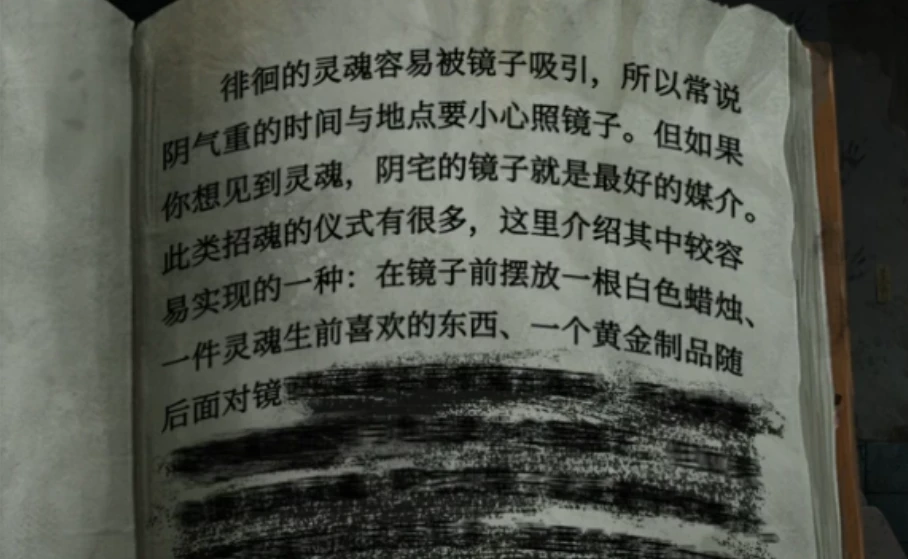 徘徊的灵魂容易被镜子吸引，所以常说
阴气重的时间与地点要小心照镜子。但如果
你想见到灵魂，阴宅的镜子就是最好的媒介。
此类招魂的仪式有很多，这里介绍其中较容
易实现的一种：在镜子前摆放一根白色蜡烛、
一件灵魂生前喜欢的东西、一个黄金制品随
后面对镜